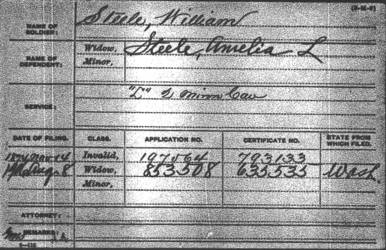 NAME OF SOLDIER: Steele, William
NAME OF DEPENDENT: Widow, Steele, Amelia L
Minor,
SERVICE: "L" 2 Minn Cav
DATE OF FILING. CLASS. APPLICATION NO. CERTIFICATE NO. STATE FROM WHICH FILED.
1874 Nov 14 Invalid, 197564 793133
Aug 8 Widow, 853508 635535 Wash
Minor,
ATTORNEY:
REMARKS: